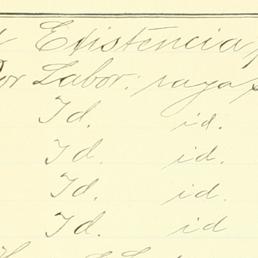 Existencia
Por Labor: raya
Id. id.
Id. id.
Id. id.
Id. id